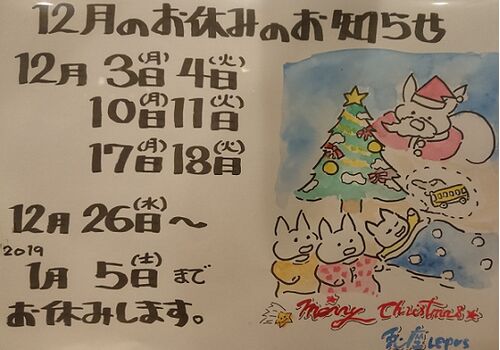 12月のお休みのお知らせ
12月 3日(月) 4日(火)
10日(月) 11日(火)
17日(月) 18日(火)
12月 26日(水)～
2019
1月 5日(土)まで
お休みします。
Merry Christmas
LEPUS